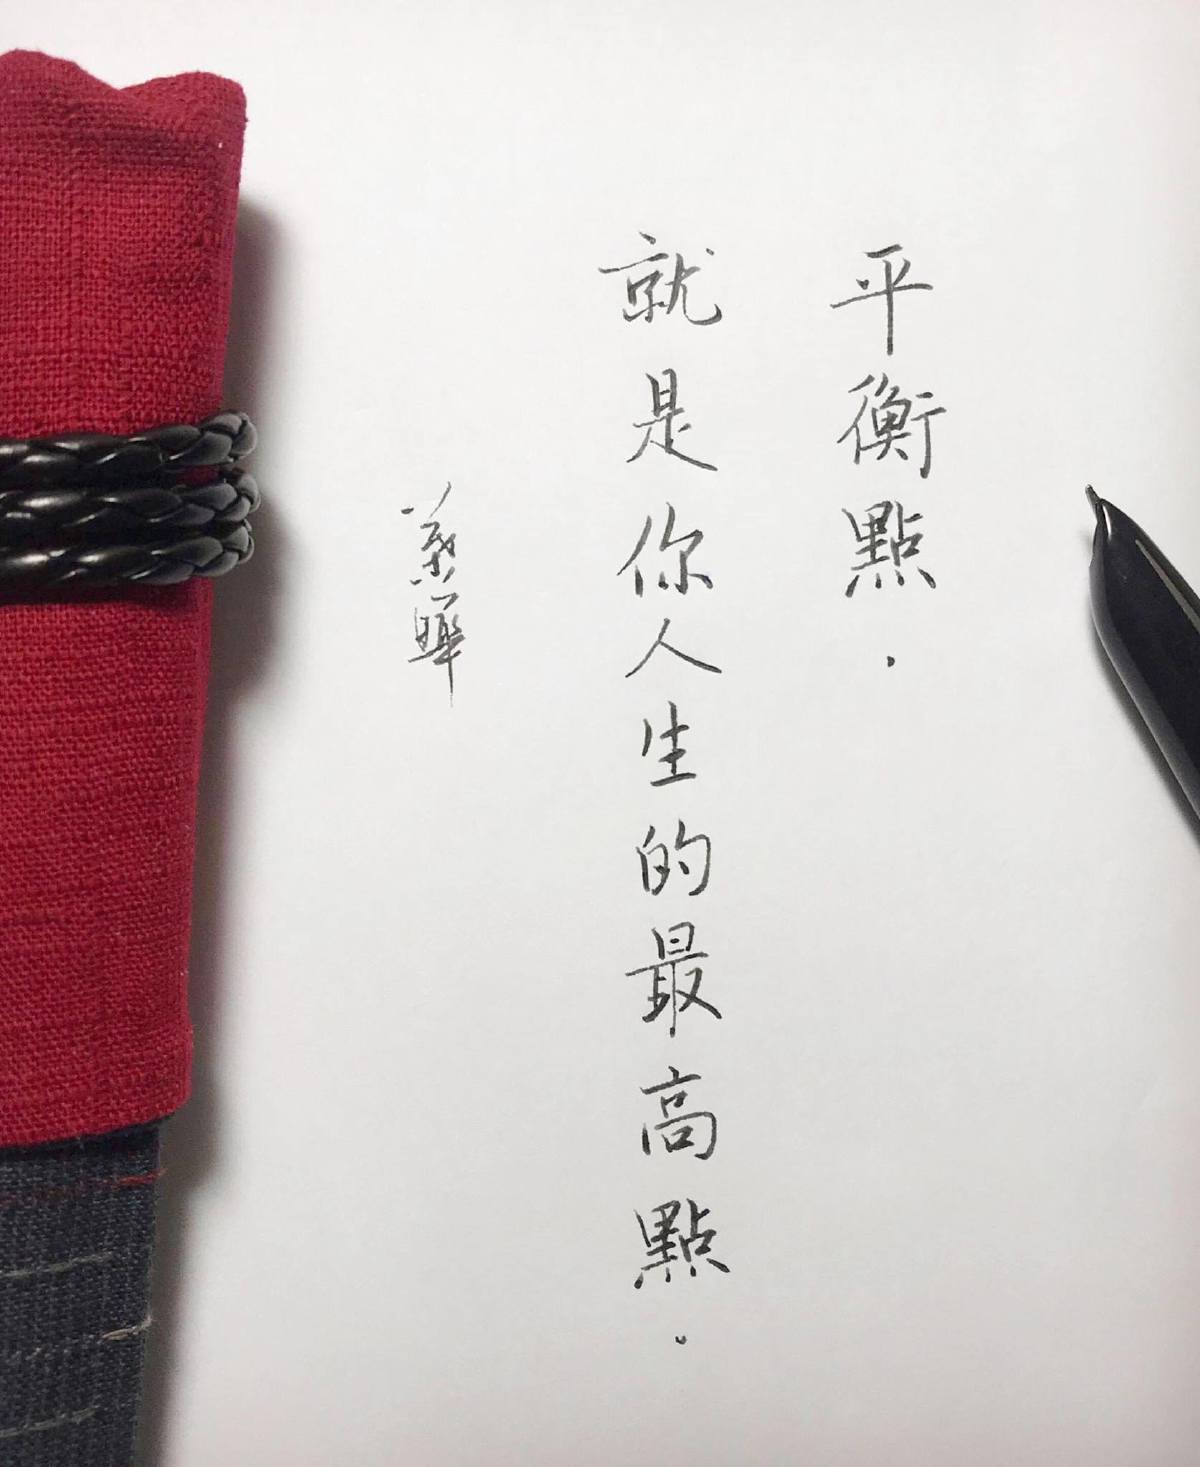 平衡點．
就是你人生的最高點．